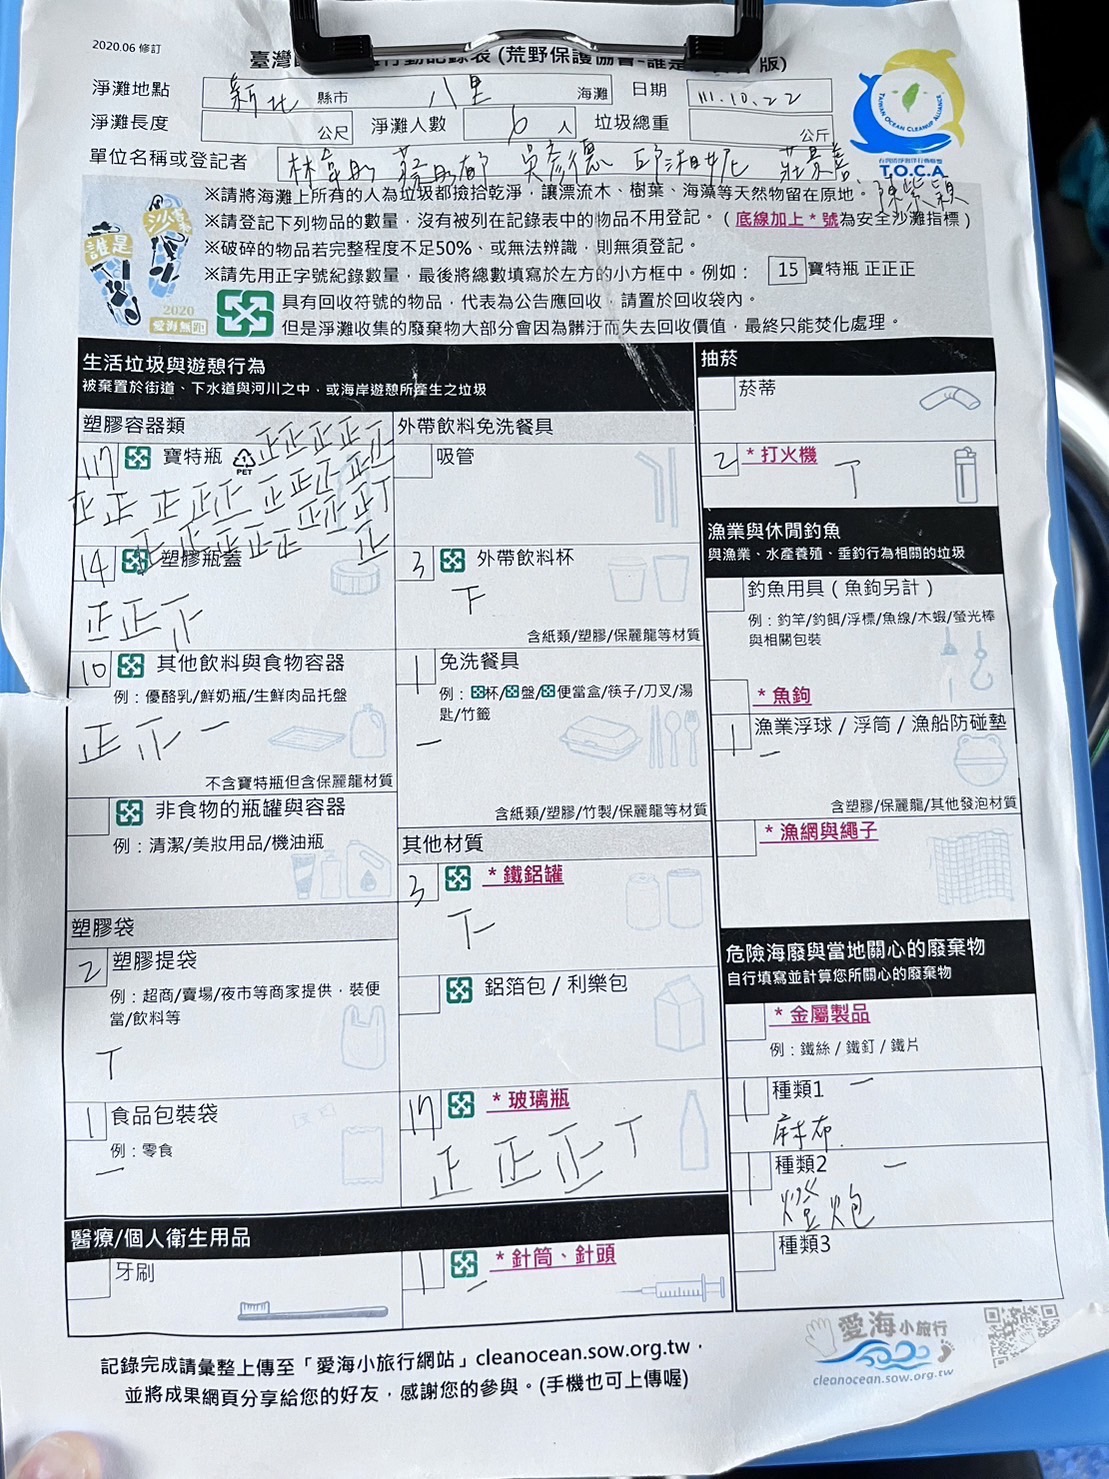 2020.06 修訂
臺灣 行動記錄表 (荒野保護協會-誰是 版)
淨灘地點 新北 縣市 八里 海灘 日期 111.10.22
淨灘長度 公尺 淨灘人數 6 人 垃圾總重 公斤
單位名稱或登記者
TAIWAN OCEAN CLEANUP ALLIANCE
T.O.C.A.
誰是
沙灘
2020
愛海無距
※請將海灘上所有的人為垃圾都撿拾乾淨，讓漂流木、樹葉、海藻等天然物留在原地。
※請登記下列物品的數量，沒有被列在記錄表中的物品不用登記。(底線加上*號為安全沙灘指標)
※破碎的物品若完整程度不足50%、或無法辨識，則無須登記。
※請先用正字號紀錄數量，最後將總數填寫於左方的小方框中。例如： 15 寶特瓶 正正正
具有回收符號的物品，代表為公告應回收，請置於回收袋內。
但是淨灘收集的廢棄物大部分會因為髒汙而失去回收價值，最終只能焚化處理。
生活垃圾與遊憩行為
被棄置於街道、下水道與河川之中，或海岸遊憩所產生之垃圾
塑膠容器類
117 寶特瓶
PET
14 塑膠瓶蓋
10 其他飲料與食物容器
例：優酪乳/鮮奶瓶/生鮮肉品托盤
正正一
不含寶特瓶但含保麗龍材質
非食物的瓶罐與容器
例：清潔/美妝用品/機油瓶
塑膠袋
2 塑膠提袋
例：超商/賣場/夜市等商家提供，裝便
當/飲料等
丅
1 食品包裝袋
例：零食
一
外帶飲料免洗餐具
吸管
3 外帶飲料杯
下
含紙類/塑膠/保麗龍等材質
1 免洗餐具
例：杯/盤/便當盒/筷子/刀叉/湯
匙/竹籤
一
含紙類/塑膠/竹製/保麗龍等材質
其他材質
3 *鐵鋁罐
下
鋁箔包/利樂包
17 *玻璃瓶
正正正丅
醫療/個人衛生用品
牙刷
1 *針筒、針頭
一
抽菸
菸蒂
2 *打火機
丅
漁業與休閒釣魚
與漁業、水產養殖、垂釣行為相關的垃圾
釣魚用具(魚鉤另計)
例：釣竿/釣餌/浮標/魚線/木蝦/螢光棒
與相關包裝
*魚鉤
1 漁業浮球/浮筒/漁船防碰墊
一
含塑膠/保麗龍/其他發泡材質
*漁網與繩子
危險海廢與當地關心的廢棄物
自行填寫並計算您所關心的廢棄物
*金屬製品
例：鐵絲/鐵釘/鐵片
1 種類1 一
麻布
1 種類2 一
燈炮
種類3
記錄完成請彙整上傳至「愛海小旅行網站」cleanocean.sow.org.tw，
並將成果網頁分享給您的好友，感謝您的參與。(手機也可上傳喔)
愛海小旅行
cleanocean.sow.org.tw